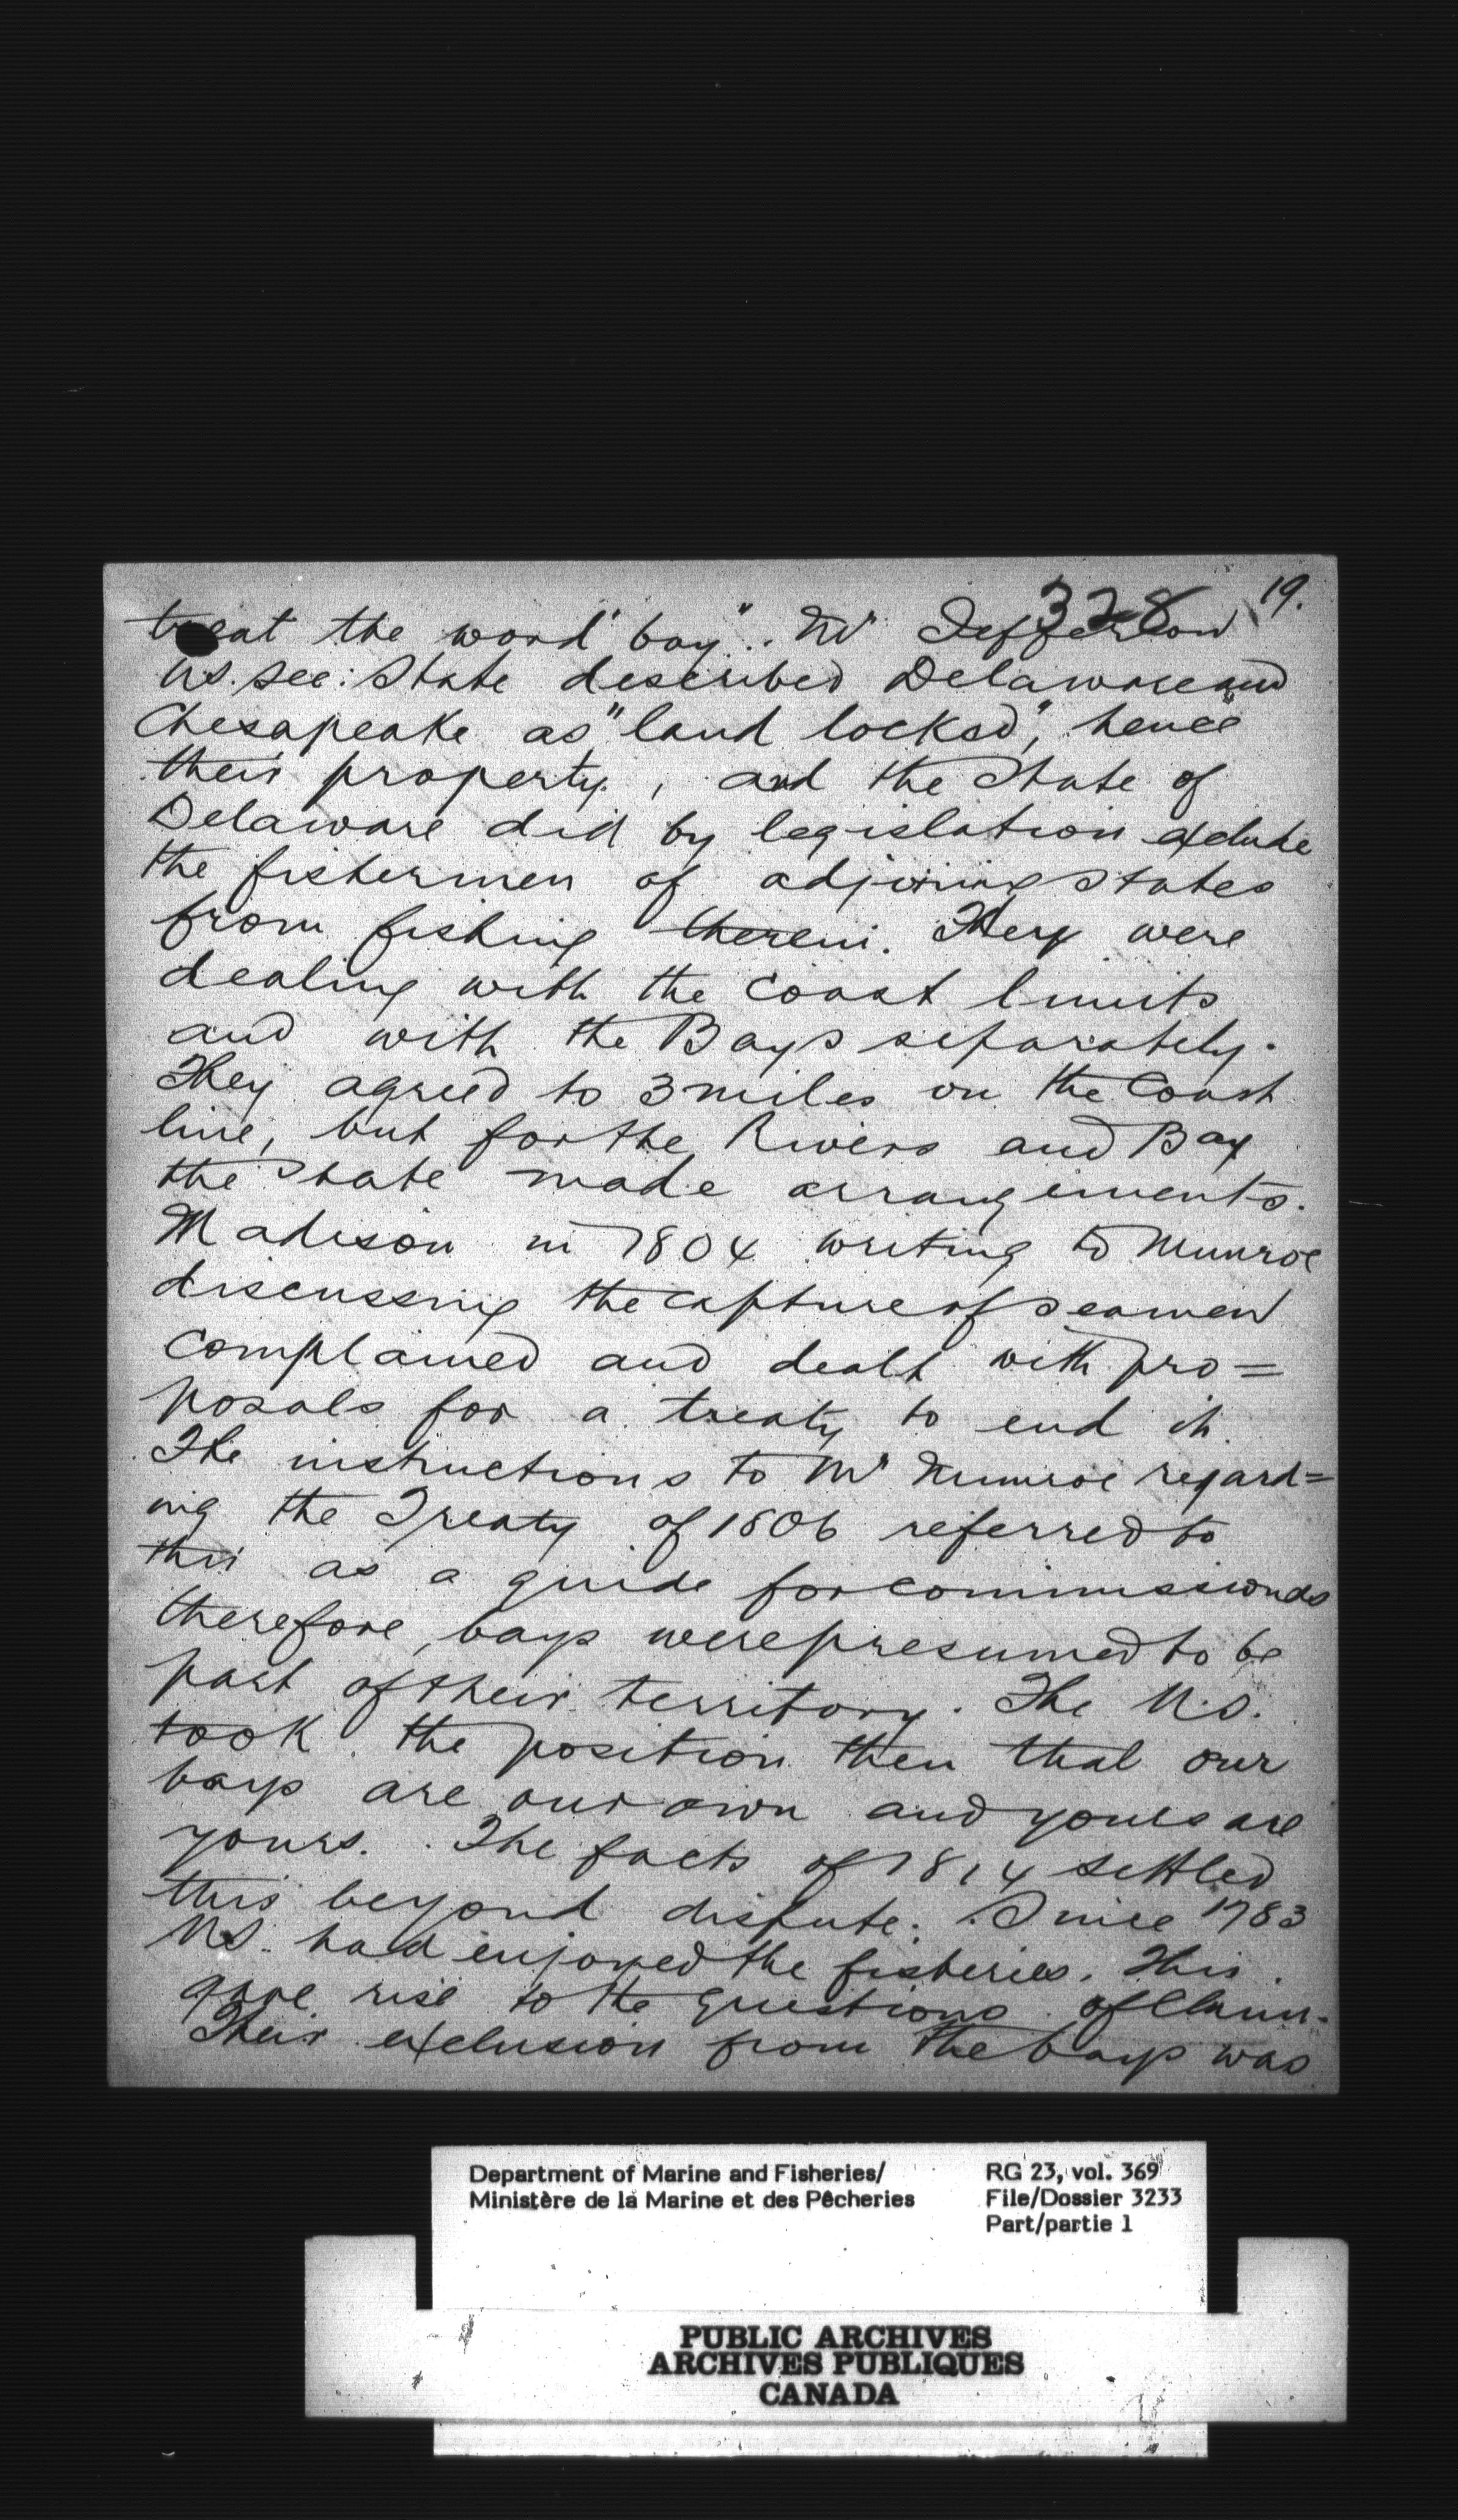 328 19.
treat the word "bay". Mr Jefferson
U.S. Sec: State described Delaware and
Chesapeake as "land locked", hence
their property, and the State of
Delaware did by legislation exclude
the fishermen of adjoining States
from fishing therein. They were
dealing with the Coast limits
and with the Bays separately.
They agreed to 3 miles on the Coast
line, but for the Rivers and Bay
the State made arrangements.
Madison in 1804 writing to Munroe
discussing the capture of seamen
complained and dealt with pro=
posals for a treaty to end it.
The instructions to Mr Munroe regard=
ing the Treaty of 1806 referred to
this as a guide for
therefore, bays were presumed to be
part of their territory. The U.S.
took the position then that our
bays are our own and yours are
yours. The facts of 1814 settled
this beyond dispute. Since 1783
U.S. had enjoyed the fisheries. This
gave rise to the questions of claim.
Their exclusion from the bays was
Department of Marine and Fisheries/
Ministère de la Marine et des Pêcheries
RG 23, vol. 369
File/Dossier 3233
Part/partie 1
PUBLIC ARCHIVES
ARCHIVES PUBLIQUES
CANADA